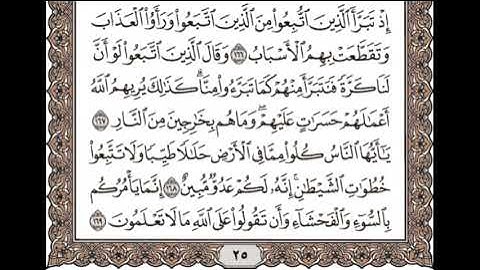 إِذْ تَبَرَّأَ ٱلَّذِينَ ٱتُّبِعُوا۟ مِنَ ٱلَّذِينَ ٱتَّبَعُوا۟ وَرَأَوُا۟ ٱلْعَذَابَ
وَتَقَطَّعَتْ بِهِمُ ٱلْأَسْبَابُ ١٦٦ وَقَالَ ٱلَّذِينَ ٱتَّبَعُوا۟ لَوْ أَنَّ
لَنَا كَرَّةً فَنَتَبَرَّأَ مِنْهُمْ كَمَا تَبَرَّءُوا۟ مِنَّا ۗ كَذَٰلِكَ يُرِيهِمُ ٱللَّهُ
أَعْمَٰلَهُمْ حَسَرَٰتٍ عَلَيْهِمْ ۖ وَمَا هُم بِخَٰرِجِينَ مِنَ ٱلنَّارِ ١٦٧
يَٰٓأَيُّهَا ٱلنَّاسُ كُلُوا۟ مِمَّا فِى ٱلْأَرْضِ حَلَٰلًا طَيِّبًا وَلَا تَتَّبِعُوا۟
خُطُوَٰتِ ٱلشَّيْطَٰنِ ۚ إِنَّهُۥ لَكُمْ عَدُوٌّ مُّبِينٌ ١٦٨ إِنَّمَا يَأْمُرُكُم
بِٱلسُّوٓءِ وَٱلْفَحْشَآءِ وَأَن تَقُولُوا۟ عَلَى ٱللَّهِ مَا لَا تَعْلَمُونَ ١٦٩
٢٥